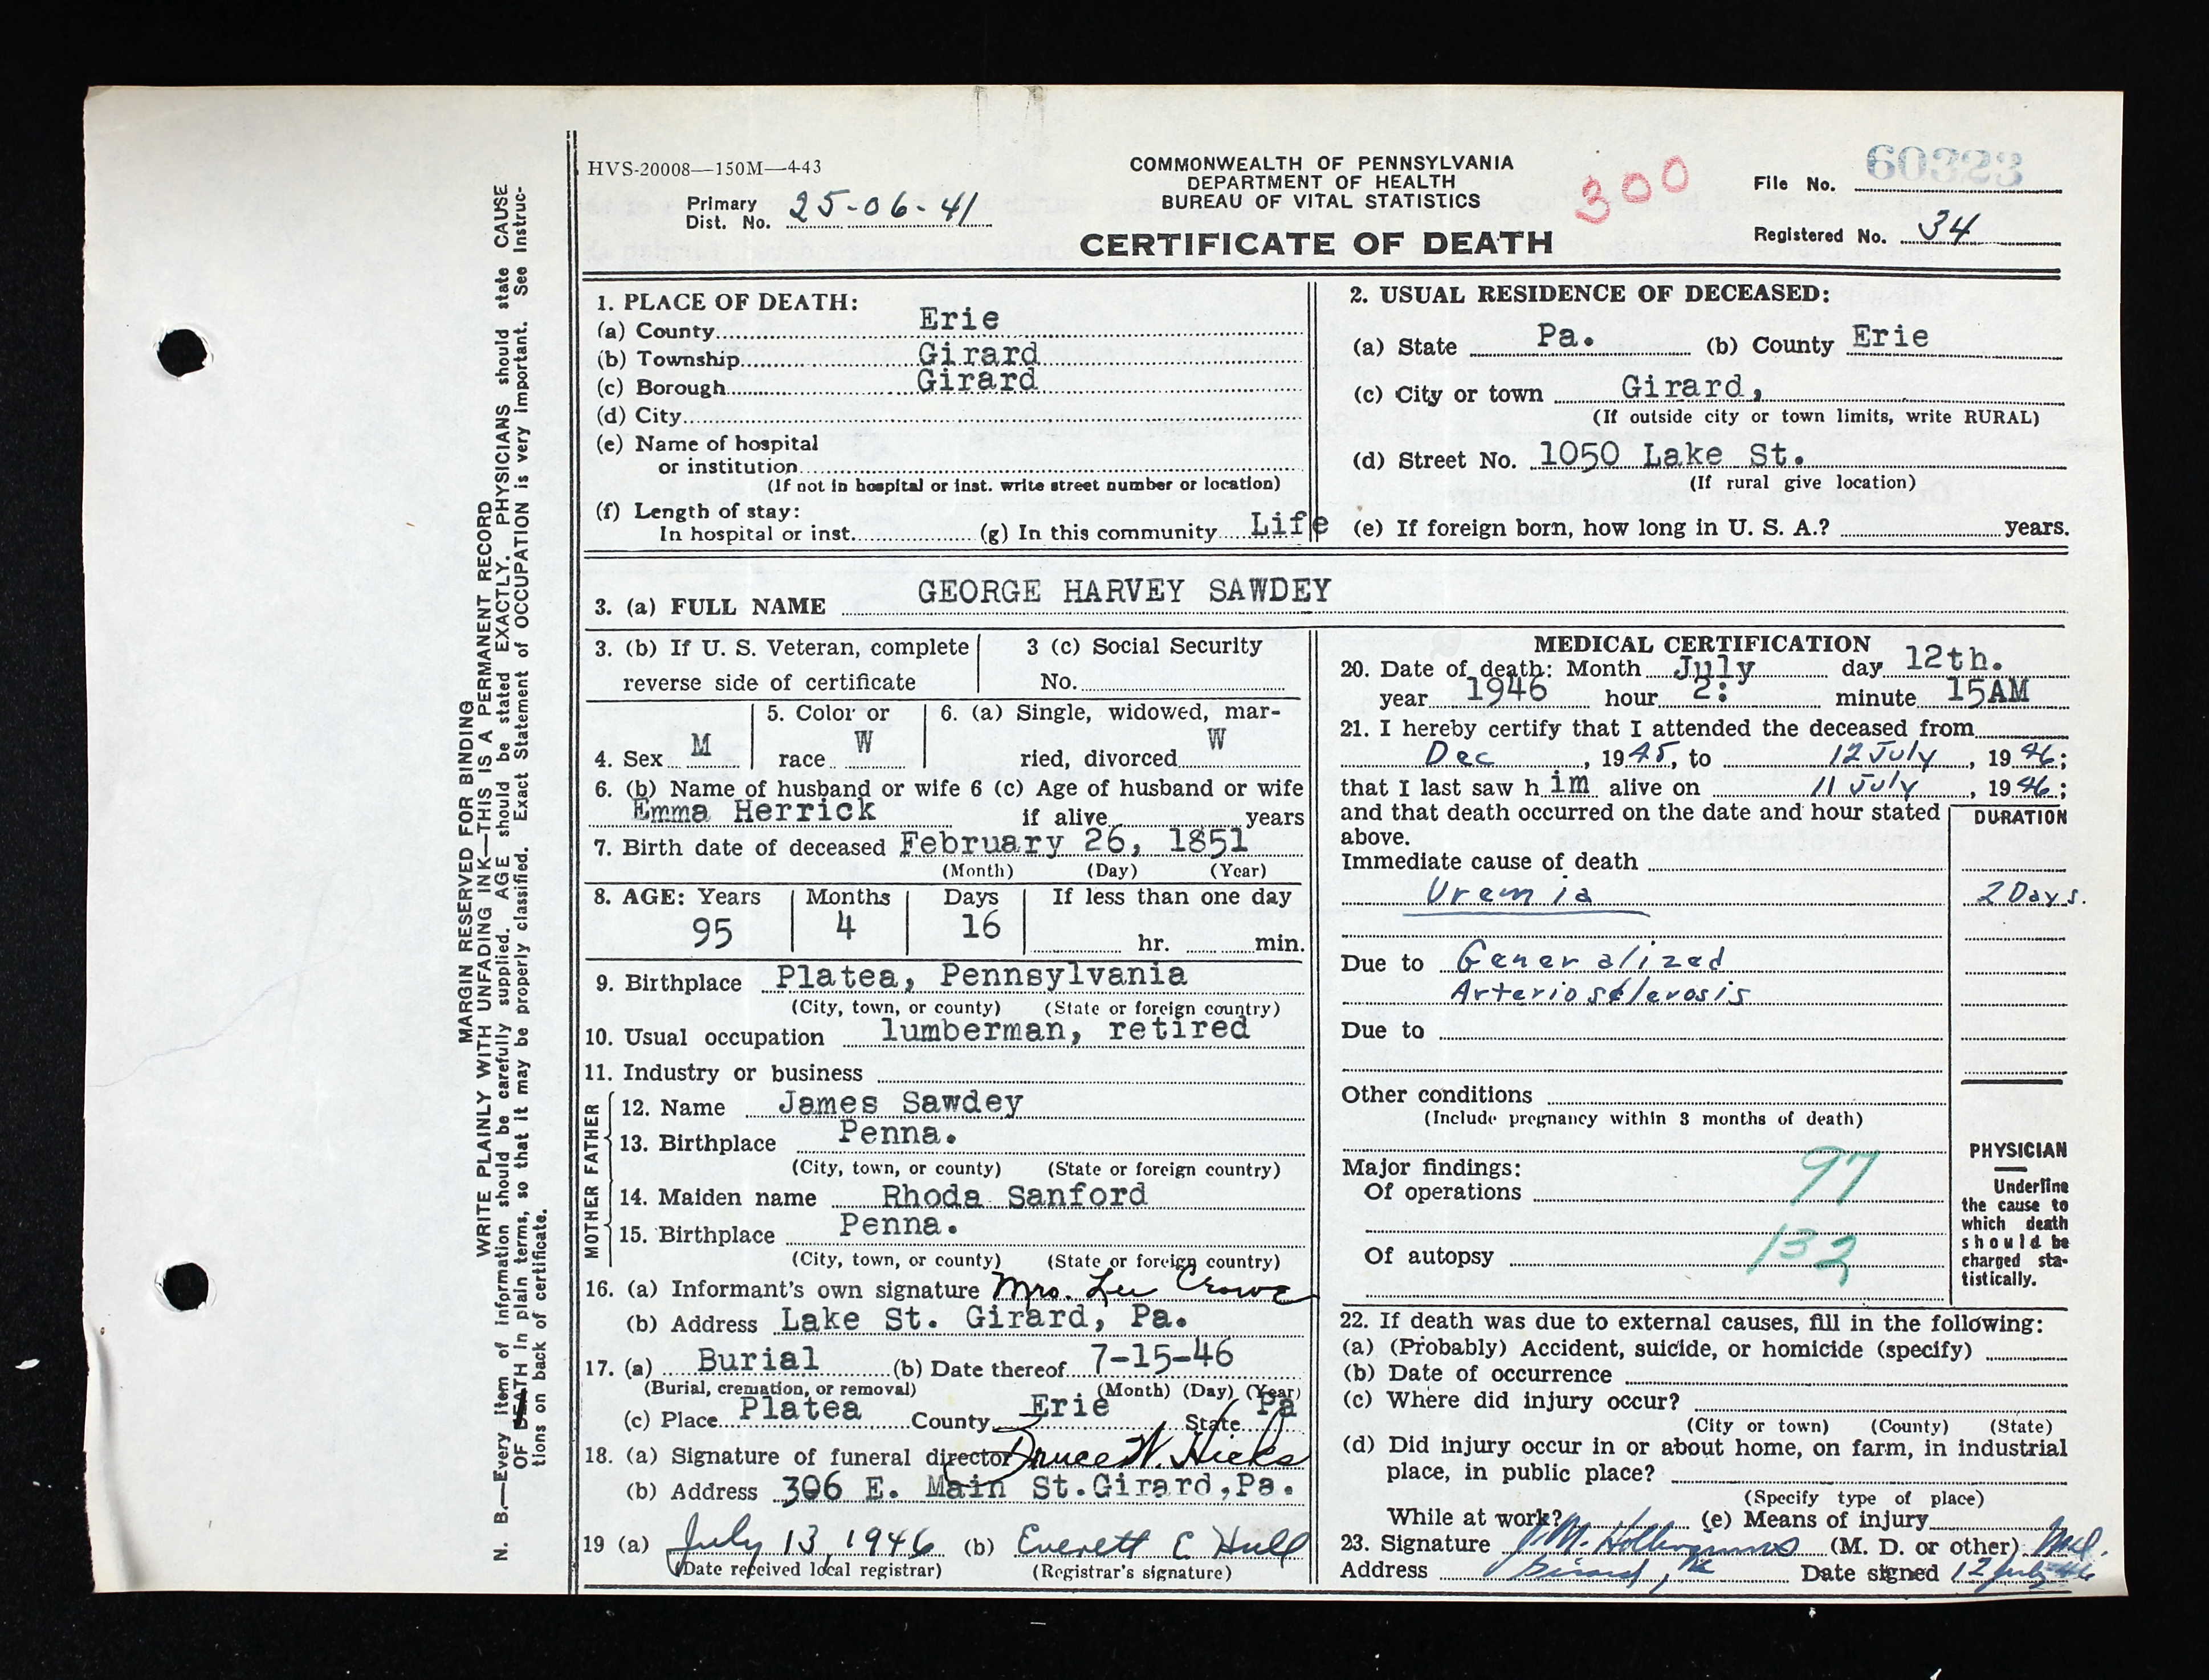 HVS-20008—150M—4-43
COMMONWEALTH OF PENNSYLVANIA
DEPARTMENT OF HEALTH
BUREAU OF VITAL STATISTICS
CERTIFICATE OF DEATH
300
Primary
Dist. No. 25-06-41
File No. 60323
Registered No. 34
MARGIN RESERVED FOR BINDING
WRITE PLAINLY WITH UNFADING INK—THIS IS A PERMANENT RECORD
N. B.—Every item of information should be carefully supplied. AGE should be stated EXACTLY. PHYSICIANS should state CAUSE
OF DEATH in plain terms, so that it may be properly classified. Exact Statement of OCCUPATION is very important. See Instruc-
tions on back of certificate.
1. PLACE OF DEATH:
(a) County Erie
(b) Township Girard
(c) Borough Girard
(d) City
(e) Name of hospital
or institution
(If not in hospital or inst. write street number or location)
(f) Length of stay:
In hospital or inst. (g) In this community Life
2. USUAL RESIDENCE OF DECEASED:
(a) State Pa. (b) County Erie
(c) City or town Girard,
(If outside city or town limits, write RURAL)
(d) Street No. 1050 Lake St.
(If rural give location)
(e) If foreign born, how long in U. S. A.? years.
3. (a) FULL NAME GEORGE HARVEY SAWDEY
3. (b) If U. S. Veteran, complete
reverse side of certificate
3 (c) Social Security
No.
4. Sex M
5. Color or
race W
6. (a) Single, widowed, mar-
ried, divorced W
6. (b) Name of husband or wife 6 (c) Age of husband or wife
Emma Herrick if alive years
7. Birth date of deceased February 26, 1851
(Month) (Day) (Year)
8. AGE: Years Months Days If less than one day
95 4 16 hr. min.
9. Birthplace Platea, Pennsylvania
(City, town, or county) (State or foreign country)
10. Usual occupation lumberman, retired
11. Industry or business
FATHER
12. Name James Sawdey
13. Birthplace Penna.
(City, town, or county) (State or foreign country)
MOTHER
14. Maiden name Rhoda Sanford
15. Birthplace Penna.
(City, town, or county) (State or foreign country)
16. (a) Informant's own signature Mrs. Lee Crowe
(b) Address Lake St. Girard, Pa.
17. (a) Burial (b) Date thereof 7-15-46
(Burial, cremation, or removal) (Month) (Day) (Year)
(c) Place Platea County Erie State Pa
18. (a) Signature of funeral director Bruce W. Hicks
(b) Address 306 E. Main St.Girard,Pa.
19 (a) July 13, 1946 (b) Everett E Hull
(Date received local registrar) (Registrar's signature)
MEDICAL CERTIFICATION
20. Date of death: Month July day 12th.
year 1946 hour 2: minute 15AM
21. I hereby certify that I attended the deceased from
Dec, 1945, to 12 July, 1946;
that I last saw h im alive on 11 July, 1946;
and that death occurred on the date and hour stated
above.
DURATION
Immediate cause of death
Uremia 2 Days.
Due to Generalized
Arteriosclerosis
Due to
Other conditions
(Include pregnancy within 3 months of death)
Major findings:
Of operations 97
Of autopsy 132
PHYSICIAN
Underline
the cause to
which death
should be
charged sta-
tistically.
22. If death was due to external causes, fill in the following:
(a) (Probably) Accident, suicide, or homicide (specify)
(b) Date of occurrence
(c) Where did injury occur?
(City or town) (County) (State)
(d) Did injury occur in or about home, on farm, in industrial
place, in public place?
(Specify type of place)
While at work? (e) Means of injury
23. Signature (M. D. or other) M.d.
Address Girard, Pa Date signed 12 July 46